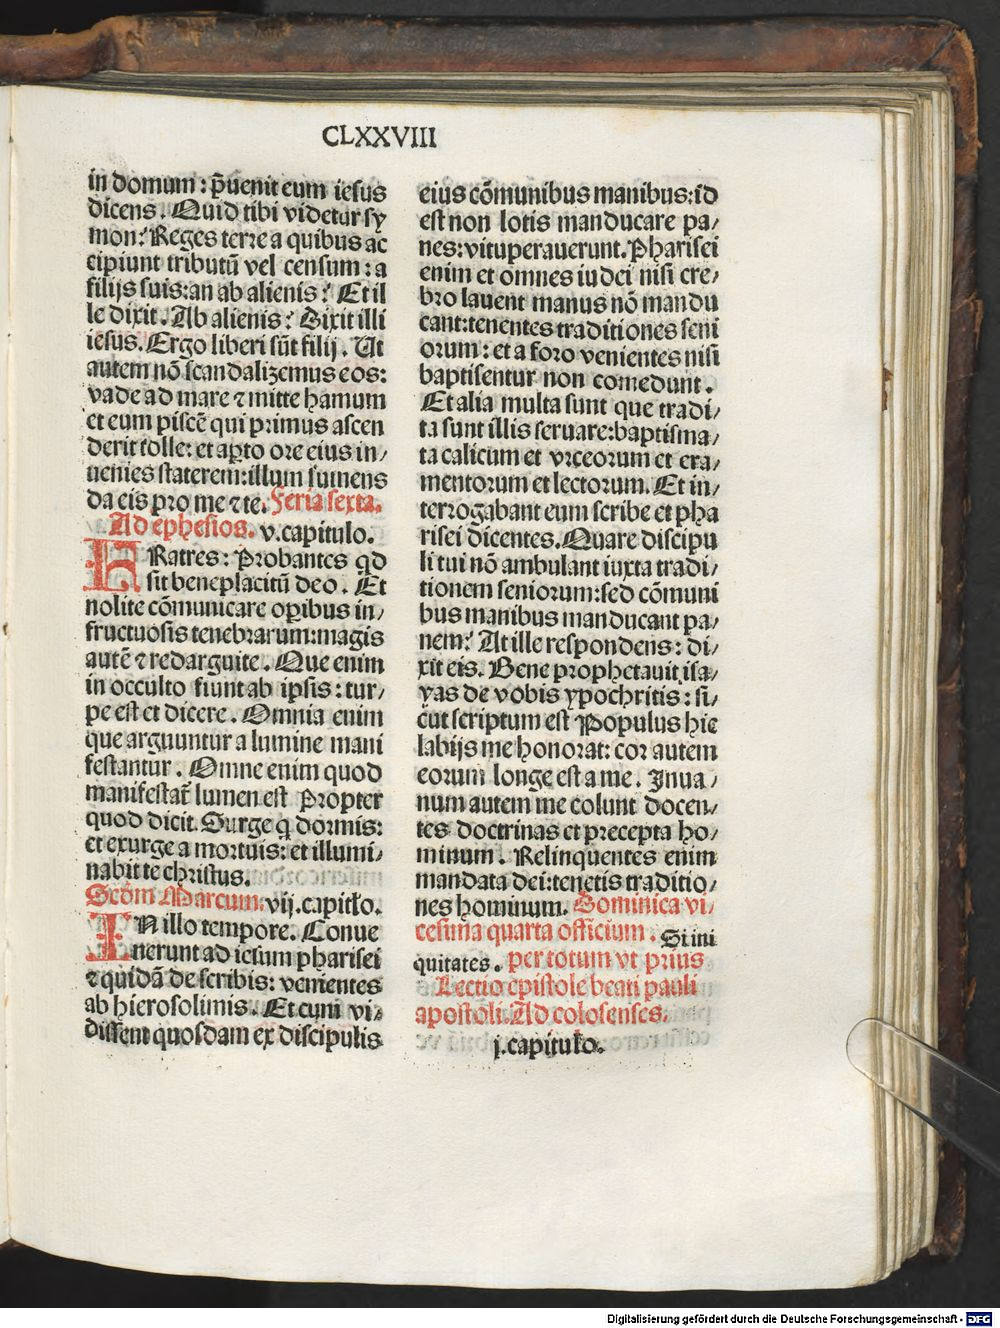 CLXXVIII
in domum: p̄uenit eum iesus
dicens. Quid tibi videtur sy
mon? Reges terre a quibus ac
cipiunt tributū vel censum: a
filijs suis: an ab alienis? Et il
le dixit. Ab alienis? Dixit illi
iesus. Ergo liberi sūt filij. Ut
autem nō scandalizemus eos:
vade ad mare ⁊ mitte hamum
et eum piscē qui primus ascen
derit tolle: et aꝑto ore eius in/
uenies staterem: illum sumens
da eis pro me ⁊ te. Feria sexta.
Ad ephesios. v. capitulo.
FRatres: Probantes qd
sit beneplacitū deo. Et
nolite cōmunicare oꝑibus in/
fructuosis tenebrarum: magis
autē ⁊ redarguite. Que enim
in occulto fiunt ab ipsis: tur/
pe est et dicere. Omnia enim
que arguuntur a lumine mani
festantur. Omne enim quod
manifestat̄ lumen est Propter
quod dicit. Surge q̄ dormis:
et exurge a mortuis: et illumi/
nabit te christus.
Scd̄m Marcum. vij. capitło.
IN illo tempore. Conue
nerunt ad iesum pharisei
⁊ quidā de scribis: venientes
ab hierosolimis. Et cum vi/
dissent quosdam ex discipulis
eius cōmunibus manibus: id
est non lotis manducare pa/
nes: vituperauerunt. Pharisei
enim et omnes iudei nisi cre/
bro lauent manus nō mandu
cant: tenentes traditiones seni
orum: et a foro venientes nisi
baptisentur non comedunt.
Et alia multa sunt que tradi/
ta sunt illis seruare: baptisma/
ta calicum et vrceorum et era/
mentorum et lectorum. Et in/
terrogabant eum scribe et pha
risei dicentes. Quare discipu
li tui nō ambulant iuxta tradi/
tionem seniorum: sed cōmuni
bus manibus manducant pa/
nem? At ille respondens: di/
xit eis. Bene prophetauit isa/
yas de vobis ypochritis: si/
cut scriptum est Populus hic
labijs me honorat: cor autem
eorum longe est a me. Inua/
num autem me colunt docen/
tes doctrinas et precepta ho/
minum. Relinquentes enim
mandata dei: tenetis traditio/
nes hominum. Dominica vi/
cesima quarta officium. Si ini
quitates. per totum vt prius
Lectio epistole beati pauli
apostoli. Ad colosenses.
j. capitulo.
Digitalisierung gefördert durch die Deutsche Forschungsgemeinschaft - DFG